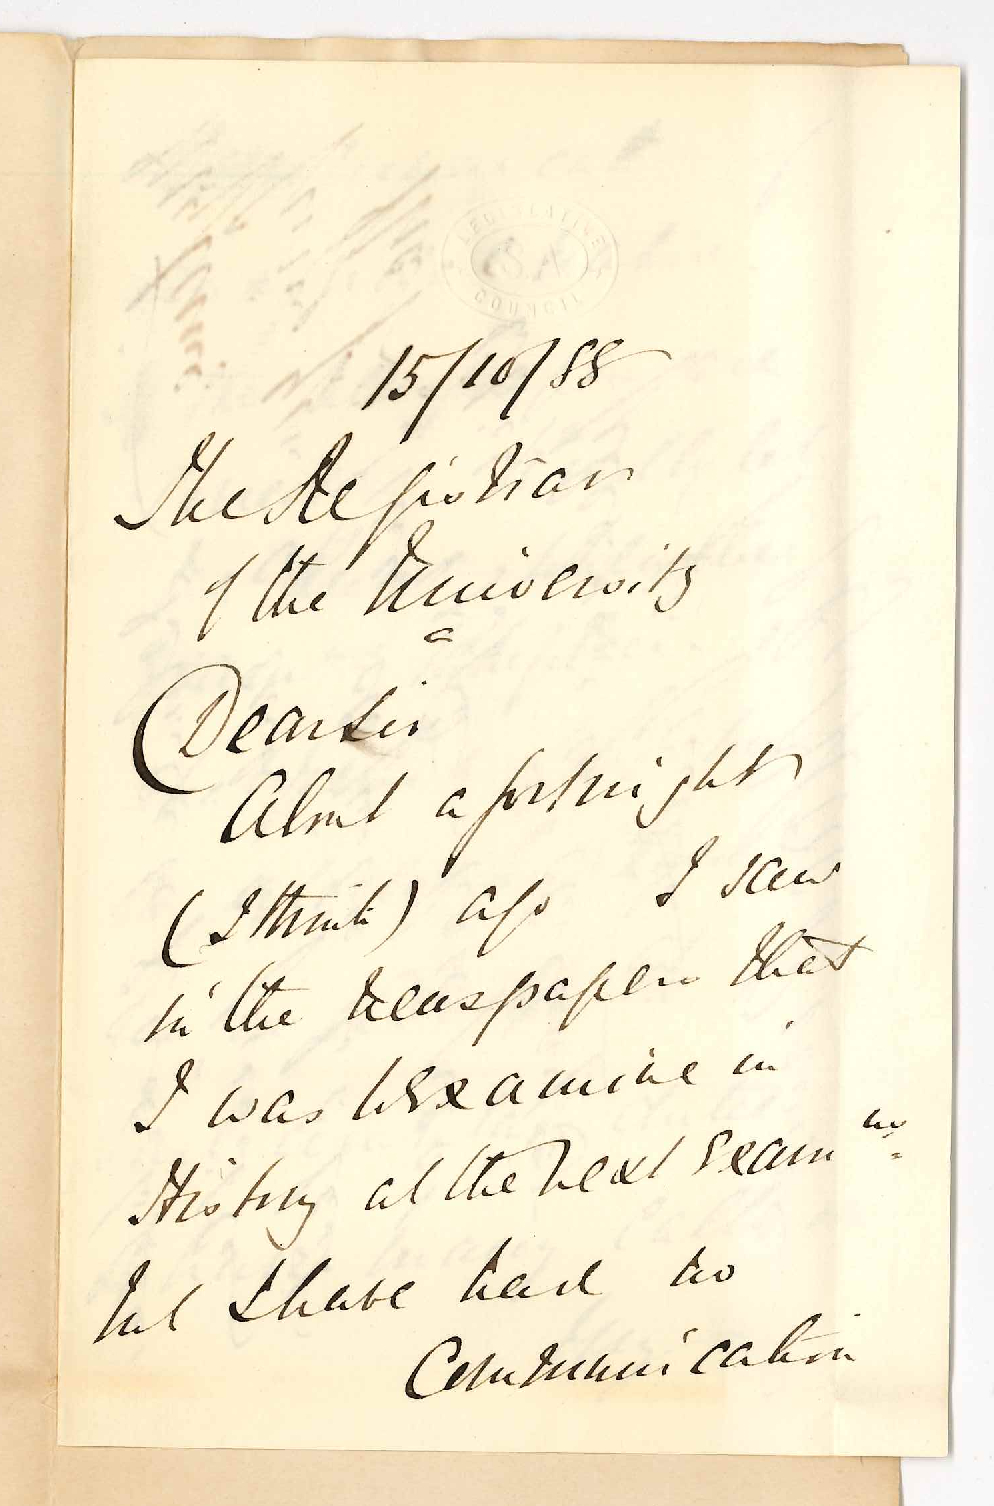 LEGISLATIVE
S.A.
COUNCIL
15/10/88
The Registrar
of the University
Dear Sir
About a fortnight
(I think) ago I saw
in the newspaper that
I was to examine in
History at the next exam ns
but I have had no
Communication